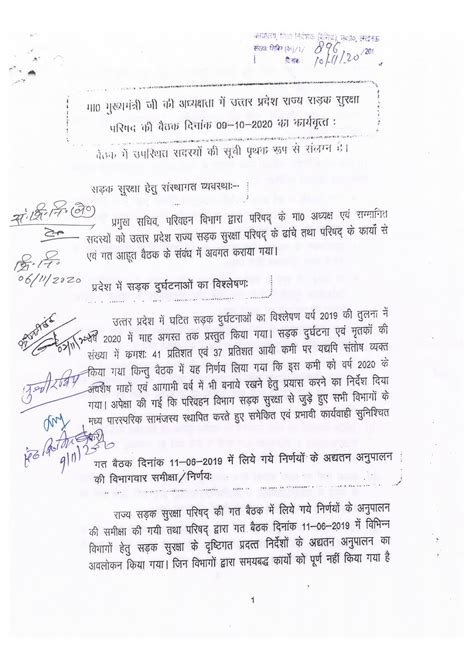 896
10/11/20
मा0 मुख्यमंत्री जी की अध्यक्षता में उत्तर प्रदेश राज्य सड़क सुरक्षा
परिषद की बैठक दिनांक 09-10-2020 का कार्यवृत्त :
बैठक में उपस्थित सदस्यों की सूची पृथक रूप से संलग्न है।
सड़क सुरक्षा हेतु संस्थागत व्यवस्थाः-
प्रमुख सचिव, परिवहन विभाग द्वारा परिषद् के मा0 अध्यक्ष एवं सम्मानित
सदस्यों को उत्तर प्रदेश राज्य सड़क सुरक्षा परिषद के ढांचे तथा परिषद के कार्यो से
एवं गत आहूत बैठक के संबंध में अवगत कराया गया।
06/11/2020
प्रदेश में सड़क दुर्घटनाओं का विश्लेषणः
उत्तर प्रदेश में घटित सड़क दुर्घटनाओं का विश्लेषण वर्ष 2019 की तुलना में
वर्ष 2020 में माह अगस्त तक प्रस्तुत किया गया। सड़क दुर्घटना एवं मृतकों की
संख्या में क्रमशः 41 प्रतिशत एवं 37 प्रतिशत आयी कमी पर यद्यपि संतोष व्यक्त
किया गया किन्तु बैठक में यह निर्णय लिया गया कि इस कमी को वर्ष 2020 के
अवशेष माहों एवं आगामी वर्ष में भी बनाये रखने हेतु प्रयास करने का निर्देश दिया
गया। अपेक्षा की गई कि परिवहन विभाग सड़क सुरक्षा से जुड़े हुए सभी विभागों के
मध्य पारस्परिक सामंजस्य स्थापित करते हुए समेकित एवं प्रभावी कार्यवाही सुनिश्चित
गत बैठक दिनांक 11-06-2019 में लिये गये निर्णयों के अद्यतन अनुपालन
की विभागवार समीक्षा/निर्णयः
राज्य सड़क सुरक्षा परिषद की गत बैठक में लिये गये निर्णयों के अनुपालन
की समीक्षा की गयी तथा परिषद् द्वारा गत बैठक दिनांक 11-06-2019 में विभिन्न
विभागों हेतु सड़क सुरक्षा के दृष्टिगत प्रदत्त निर्देशों के अद्यतन अनुपालन का
अवलोकन किया गया। जिन विभागों द्वारा समयबद्ध कार्यो को पूर्ण नहीं किया गया है
1